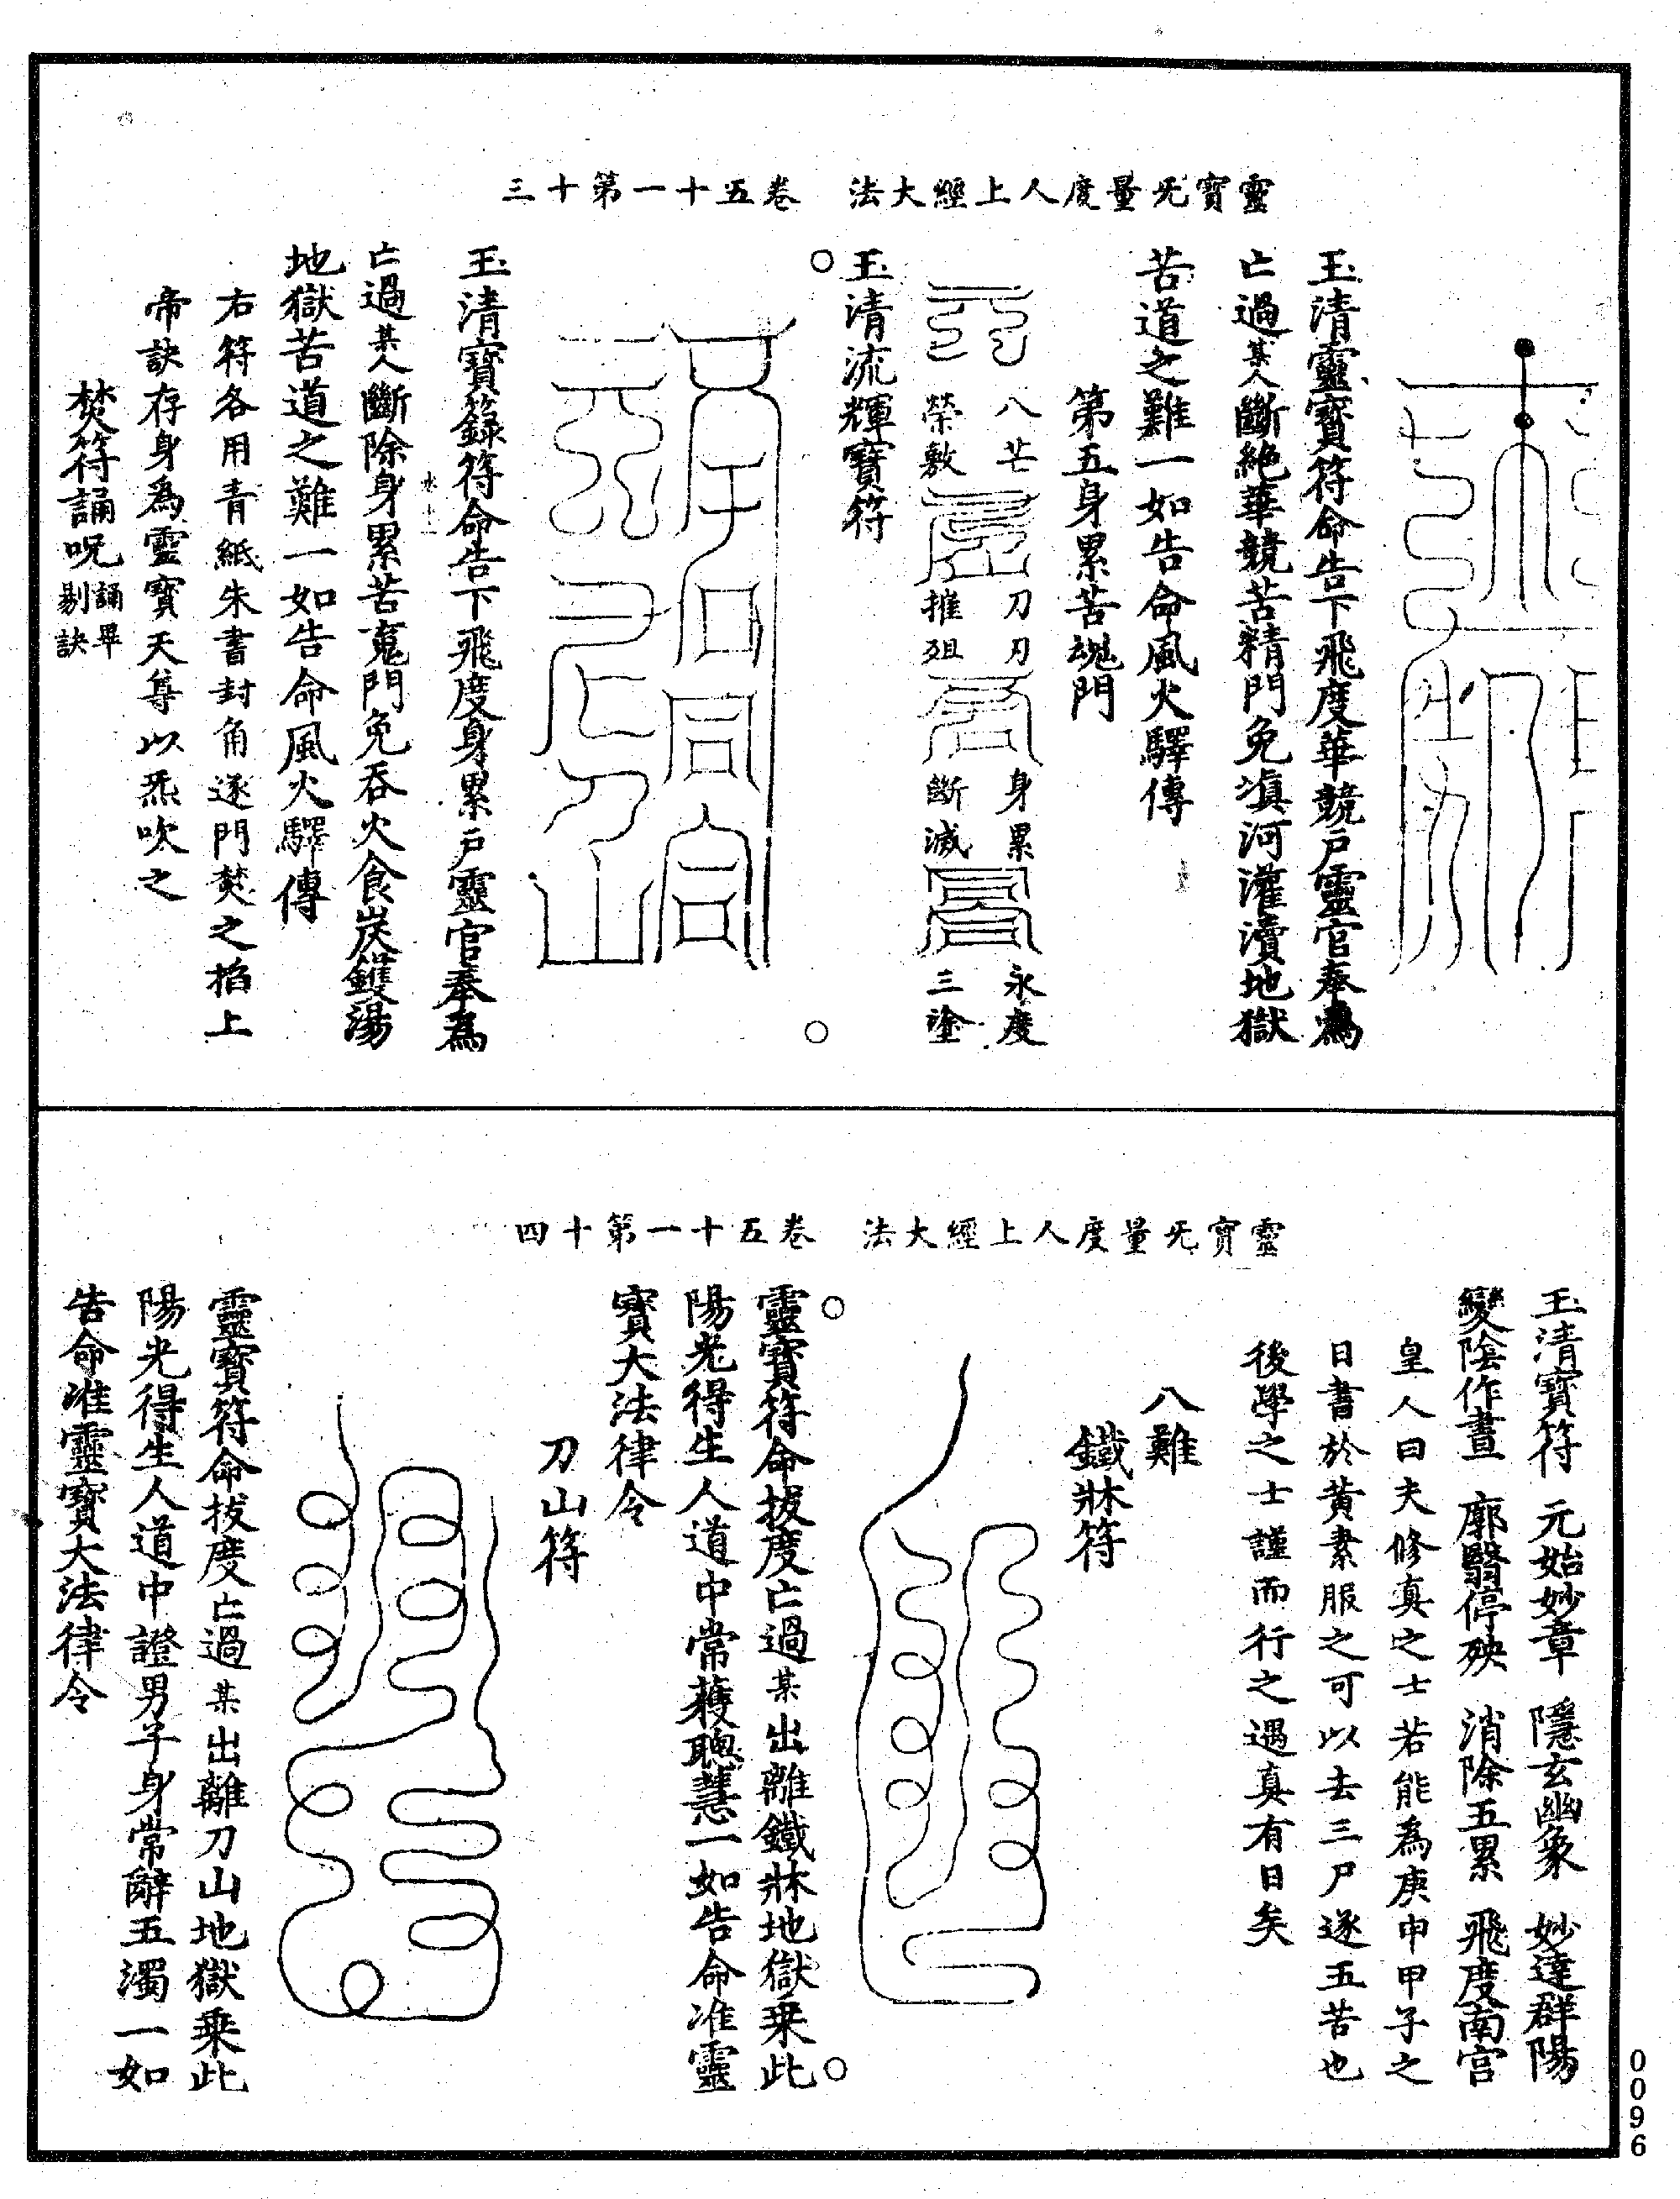 靈寶旡量度人上經大法　卷五十一第十三
玉清靈寶符命告下飛度華競戶靈官奉為
亡過某人斷絶華競苦精門免溟河灌瀆地獄
苦道之難一如告命風火驛傳
第五身累苦魂門
八芒　刀刃　身累　永度
榮敷　摧殂　斷滅　三塗
玉清流輝寶符
玉清寶籙符命告下飛度身累戶靈官奉為
亡過某人斷除身累苦䰟門免吞火食炭鑊湯
地獄苦道之難一如告命風火驛傳
右符各用青紙朱書封角逐門焚之掐上
帝訣存身為靈寶天尊以炁吹之
焚符誦呪誦畢剔訣
靈寶旡量度人上經大法　卷五十一第十四
玉清寶符　元始妙章　隱玄幽象　妙達群陽
變陰作晝　廓翳停殃　消除五累　飛度南宮
皇人曰夫修真之士若能為庚申甲子之
日書於黃素服之可以去三尸遂五苦也
後學之士謹而行之遇真有日矣
八難
鐵牀符
靈寶符命拔度亡過某出離鐵牀地獄乗此
陽光得生人道中常獲聰慧一如告命准靈
寶大法律令
刀山符
靈寶符命拔度亡過某出離刀山地獄乗此
陽光得生人道中證男子身常辭五濁一如
告命准靈寶大法律令
0096